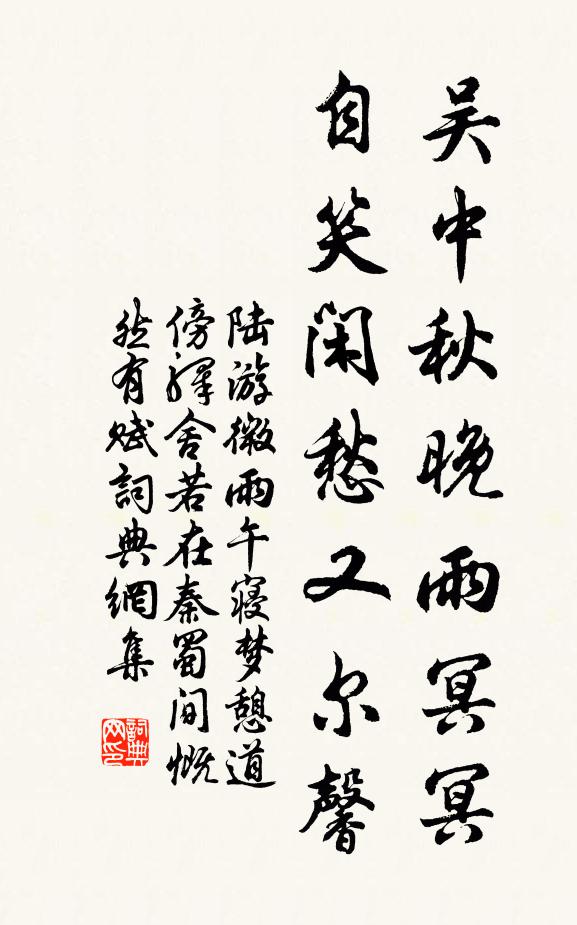 吴中秋晚雨冥冥
自笑闲愁又尔馨
陆游微雨午寝梦憩道
傍驿舍若在秦蜀间慨
然有赋词典網集
詞典网印